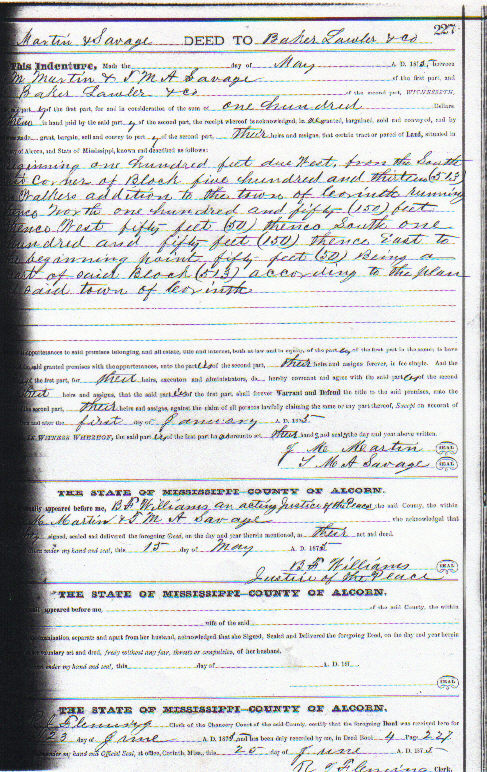 227
Martin & Savage DEED TO Baker Lawler & Co
This Indenture, Made the day of May A. D. 1875, between
M Martin & T M A Savage of the first part, and
Baker Lawler & Co of the second part, WITNESSETH,
of the first part, for and in consideration of the sum of one hundred Dollars
in hand paid by the said part y of the second part, the receipt whereof is acknowledged, granted, bargained, sold and conveyed, and by
grant, bargain, sell and convey to part y of the second part, their heirs and assigns, that certain tract or parcel of Land, situated in
of Alcorn, and State of Mississippi, known and described as follows:
ginning one hundred feet due West, from the South
Corner of Block five hundred and thirteen (513)
Walkers addition to the town of Corinth running
thence North one hundred and fifty (150) feet
thence West fifty feet (50) thence South one
hundred and fifty feet (150) thence East to
beginning point fifty feet (50) Being a
part of said Block (513) according to the plan
said town of Corinth
appurtenances to said premises belonging, and all estate, title and interest, both at law and in equity, of the part of the first part in the same; to have
said granted premises with the appurtenances, unto the part of the second part, their heirs and assigns forever, in fee simple. And the
of the first part, for their heirs, executors and administrators, do hereby covenant and agree with the said part of the second
their heirs and assigns, that the said part of the first part shall forever Warrant and Defend the title to the said premises, unto the
the second part, their heirs and assigns, against the claim of all persons lawfully claiming the same or any part thereof, Except on account of
and after the first day of January A. D. 1875
WITNESS WHEREOF, the said part of the first part unto set their hand s and seal s the day and year above written.
J M Martin SEAL
T M A Savage SEAL
THE STATE OF MISSISSIPPI-COUNTY OF ALCORN.
appeared before me, B F Williams an acting Justice of the Peace the said County, the within
M Martin & T M A Savage who acknowledged that
signed, sealed and delivered the foregoing Deed, on the day and year therein mentioned, as their act and deed.
under my hand and seal, this 15 day of May A. D. 1875
B F Williams SEAL
Justice of the Peace
THE STATE OF MISSISSIPPI-COUNTY OF ALCORN.
appeared before me, of the said County, the within
wife of the said
examination separate and apart from her husband, acknowledged that she Signed, Sealed and Delivered the foregoing Deed, on the day and year herein
voluntary act and deed, freely without any fear, threats or compulsion, of her husband.
under my hand and seal, this day of A. D. 187
SEAL
THE STATE OF MISSISSIPPI-COUNTY OF ALCORN.
Clerk of the Chancery Court of the said County, certify that the foregoing Deed was received here for
23 day of June A. D. 1875, and has been duly recorded by me, in Deed Book 4 Page 227
under my hand and Official Seal, at office, Corinth, Miss., this 25 day of June A. D. 1875
Clerk.